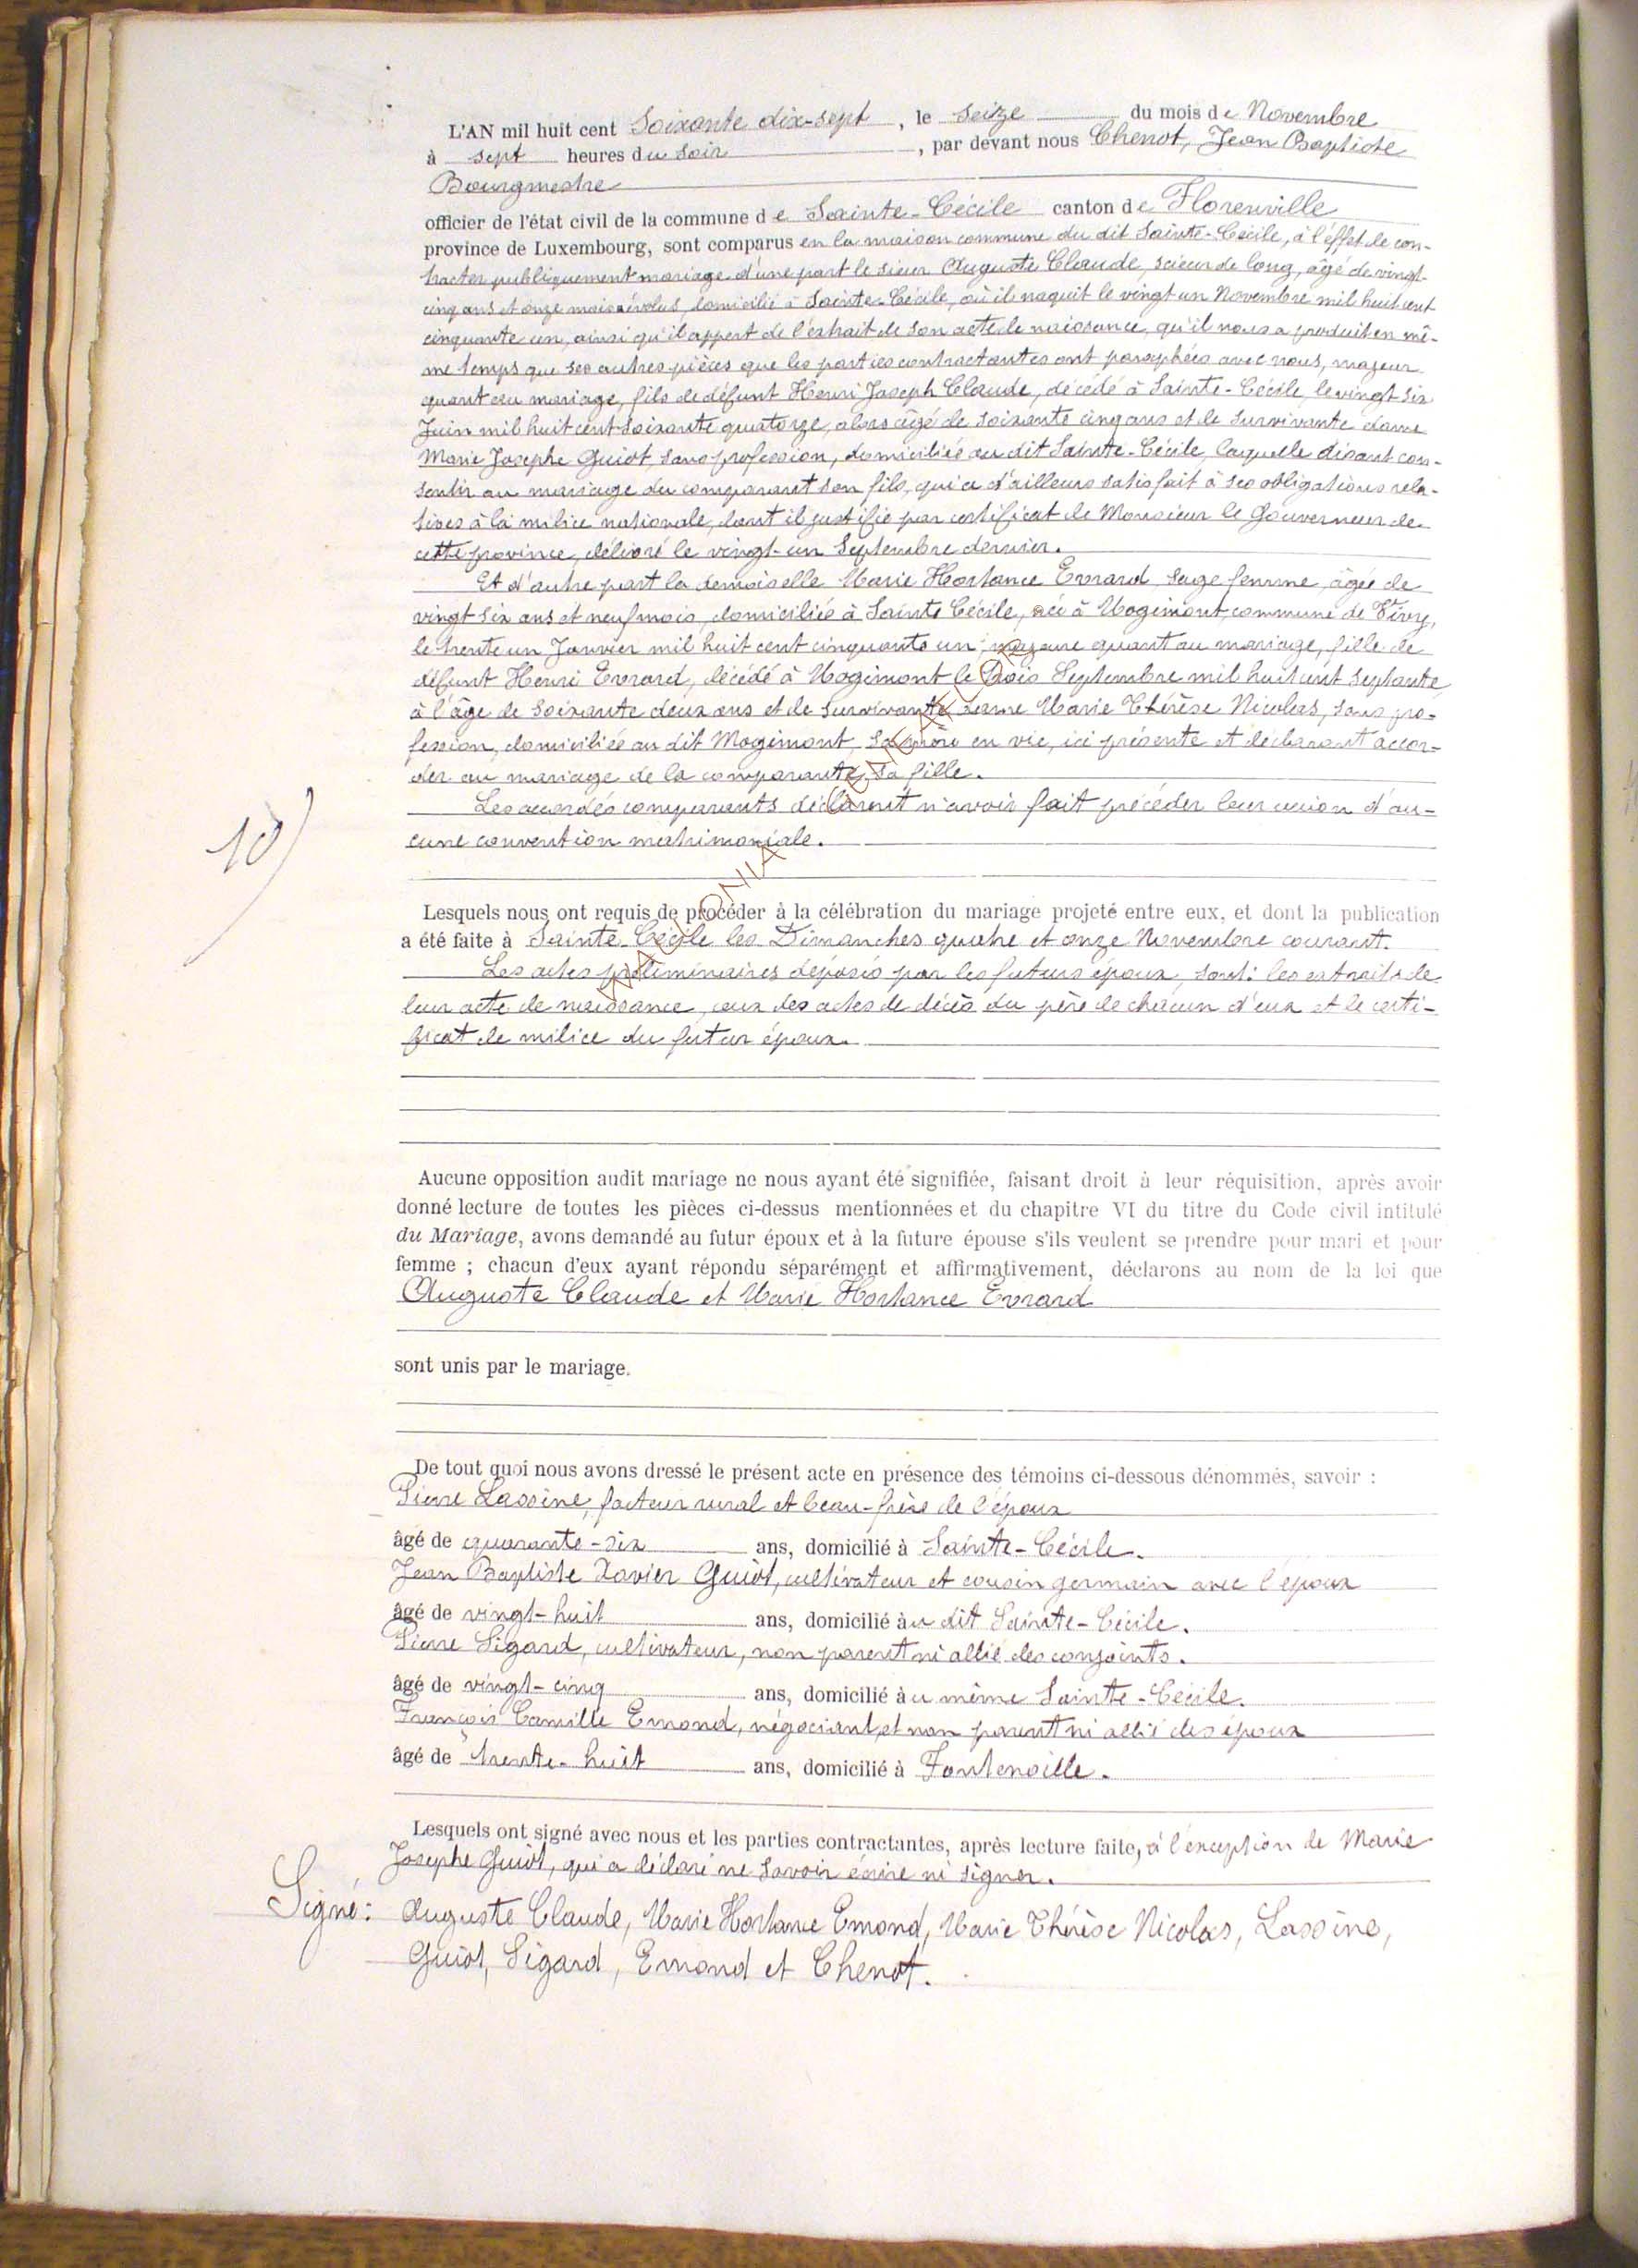 L'AN mil huit cent Soixante dix-sept, le seize du mois de Novembre
à sept heures du soir, par devant nous Chenot, Jean Baptiste
Bourgmestre
officier de l'état civil de la commune de Sainte-Cécile canton de Florenville
province de Luxembourg, sont comparus en la maison commune du dit Sainte-Cécile, à l'effet de con-
tracter publiquement mariage d'une part le sieur Auguste Claude, scieur de long, âgé de vingt-
cinq ans et onze mois révolus, domicilié à Sainte-Cécile, où il naquit le vingt un Novembre mil huit cent
cinquante un, ainsi qu'il appert de l'extrait de son acte de naissance, qu'il nous a produit en mê-
me temps que ses autres pièces que les parties contractantes ont paraphées avec nous, majeur
quant au mariage, fils de défunt Henri Joseph Claude, décédé à Sainte-Cécile, le vingt six
Juin mil huit cent soixante quatorze, alors âgé de soixante cinq ans et de survivante dame
Marie Josephe Guiot, sans profession, domiciliée au dit Sainte-Cécile, laquelle disant con-
sentir au mariage du comparant son fils, qui a d'ailleurs satisfait à ses obligations rela-
tives à la milice nationale, dont il justifie par certificat de Monsieur le Gouverneur de
cette province, délivré le vingt-un Septembre dernier.
Et d'autre part la demoiselle Marie Hortance Evrard, sage femme, âgée de
vingt six ans et neuf mois, domiciliée à Sainte Cécile, née à Mogimont, commune de Vivy,
le trente un Janvier mil huit cent cinquante un, majeure quant au mariage, fille de
défunt Henri Evrard, décédé à Mogimont le trois Septembre mil huit cent septante
à l'âge de soixante deux ans et de survivante dame Marie Thérèse Nicolas, sans pro-
fession, domiciliée au dit Mogimont, sa mère en vie, ici présente et déclarant accor-
der au mariage de la comparante, sa fille.
Les accordés comparants déclarent n'avoir fait précéder leur union d'au-
cune convention matrimoniale.
10)
Lesquels nous ont requis de procéder à la célébration du mariage projeté entre eux, et dont la publication
a été faite à Sainte-Cécile les Dimanches quatre et onze Novembre courant.
Les actes préliminaires déposés par les futurs époux, sont: les extraits de
leur acte de naissance, ceux des actes de décès du père de chacun d'eux et le certi-
ficat de milice du futur époux.
Aucune opposition audit mariage ne nous ayant été signifiée, faisant droit à leur réquisition, après avoir
donné lecture de toutes les pièces ci-dessus mentionnées et du chapitre VI du titre du Code civil intitulé
du Mariage, avons demandé au futur époux et à la future épouse s'ils veulent se prendre pour mari et pour
femme ; chacun d'eux ayant répondu séparément et affirmativement, déclarons au nom de la loi que
Auguste Claude et Marie Hortance Evrard
sont unis par le mariage.
De tout quoi nous avons dressé le présent acte en présence des témoins ci-dessous dénommés, savoir :
Pierre Lassine, facteur rural et beau-frère de l'époux
âgé de quarante-six ans, domicilié à Sainte-Cécile.
Jean Baptiste Xavier Guiot, cultivateur et cousin germain avec l'époux
âgé de vingt-huit ans, domicilié au dit Sainte-Cécile.
Pierre Sigard, cultivateur, non parent ni allié des conjoints.
âgé de vingt-cinq ans, domicilié au même Sainte-Cécile.
François Camille Emond, négociant, et non parent ni allié des époux
âgé de trente-huit ans, domicilié à Fontenoille.
Lesquels ont signé avec nous et les parties contractantes, après lecture faite, à l'exception de Marie
Josephe Guiot, qui a déclaré ne savoir écrire ni signer.
Signé: Auguste Claude, Marie Hortance Emond, Marie Thérèse Nicolas, Lassine,
Guiot, Sigard, Emond et Chenot.